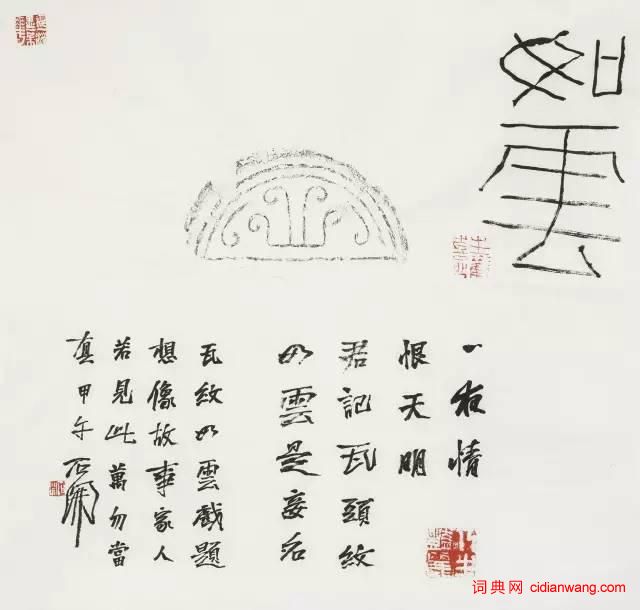 如雲
一夜情
恨天明
君記瓦頭紋
如雲是妾名
瓦紋如雲戲題
想像故事家人
若見此萬勿當
真甲午石開
词典网 cidianwang.com